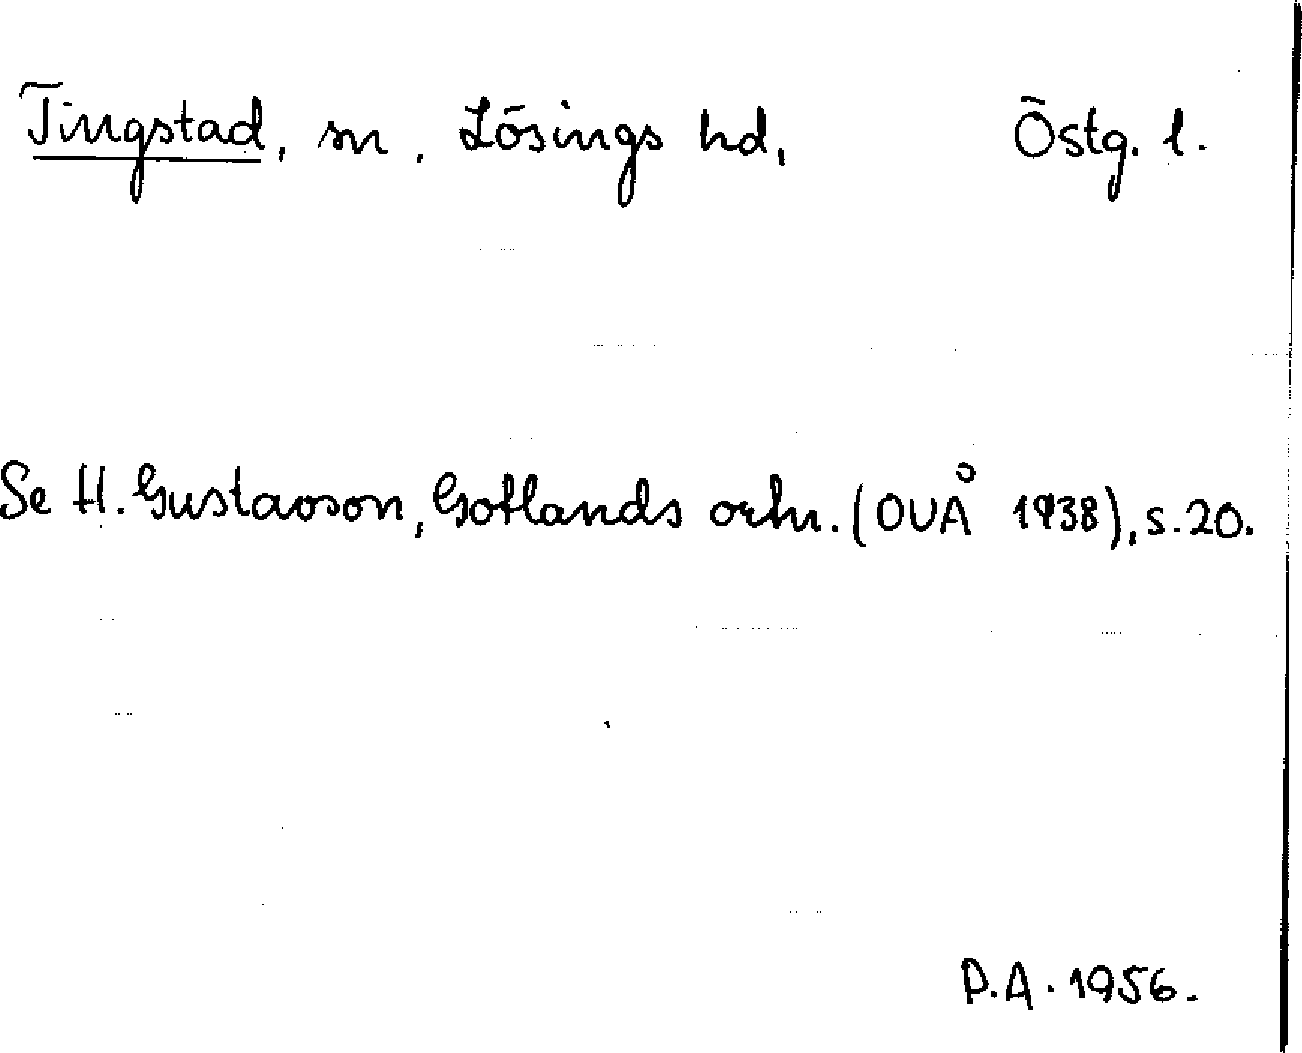 Tingstad, sn, Lösings hd, Östg. l.
Se H. Gustavson, Gotlands ortn. (OUÅ 1938), s. 20.
D.A. 1956.